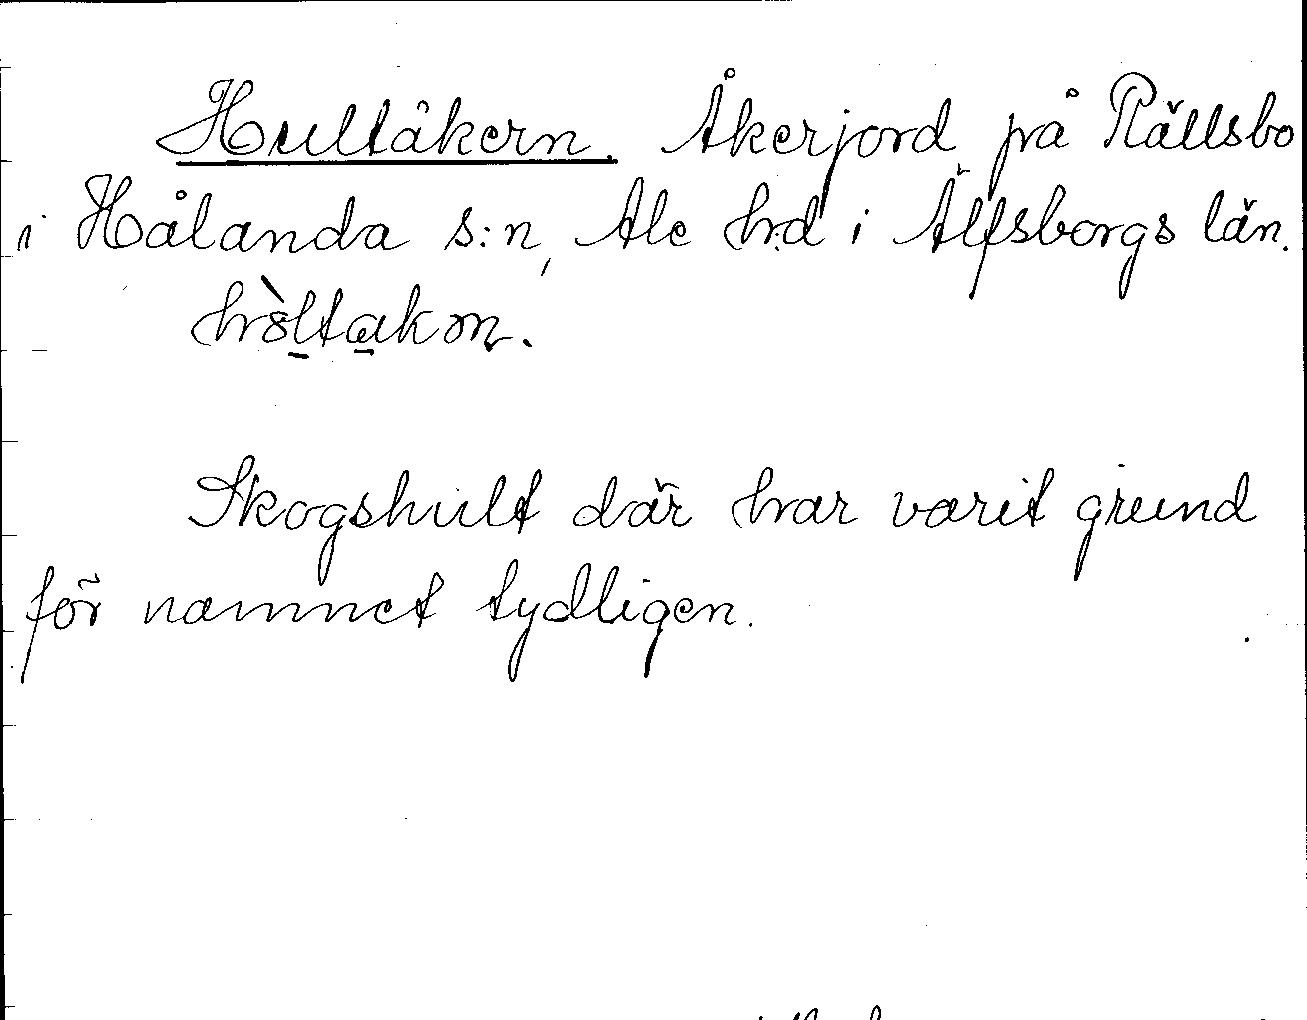 Hultåkern. Åkerjord på Rällsbo
i Hålanda s:n, Ale h:d i Älfsborgs län.
hòltakon.
Skogshult där har varit grund
för namnet tydligen.